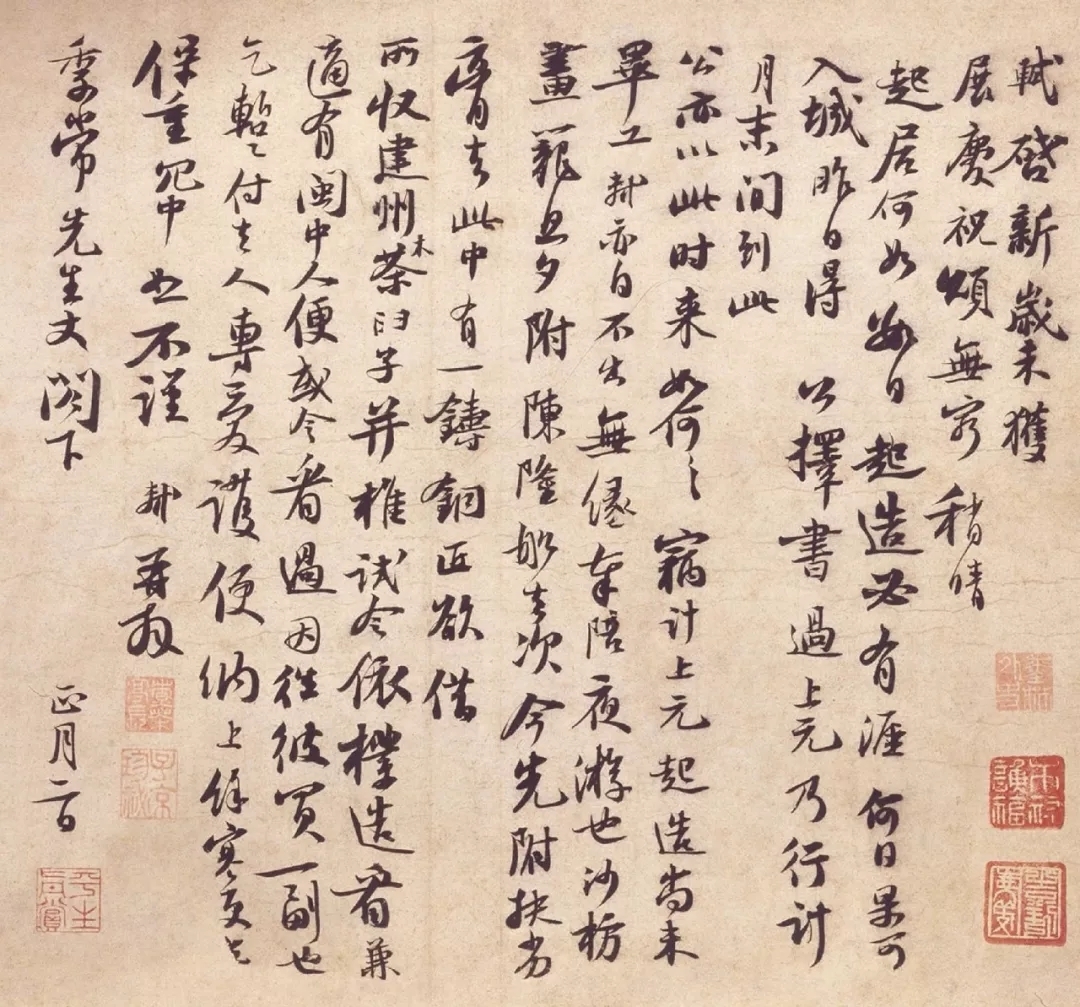 軾啓新歲未獲
展慶祝頌無窮稍晴
起居何如數日起造必有涯何日果可
入城昨日得公擇書過上元乃行計
月末間到此
公亦以此時来如何〻竊計上元起造尚未
畢工軾亦自不出無緣奉陪夜游也沙枋
畫籠旦夕附陳隆船去次今先附扶劣
膏去此中有一鑄銅匠欲借
所收建州木茶臼子并椎試令依樣造看兼
適有閩中人便或令看過因往彼買一副也
乞暫付去人專愛護便納上餘寒更乞
保重冗中恕不謹軾再拜
季常先生丈閣下
正月二日